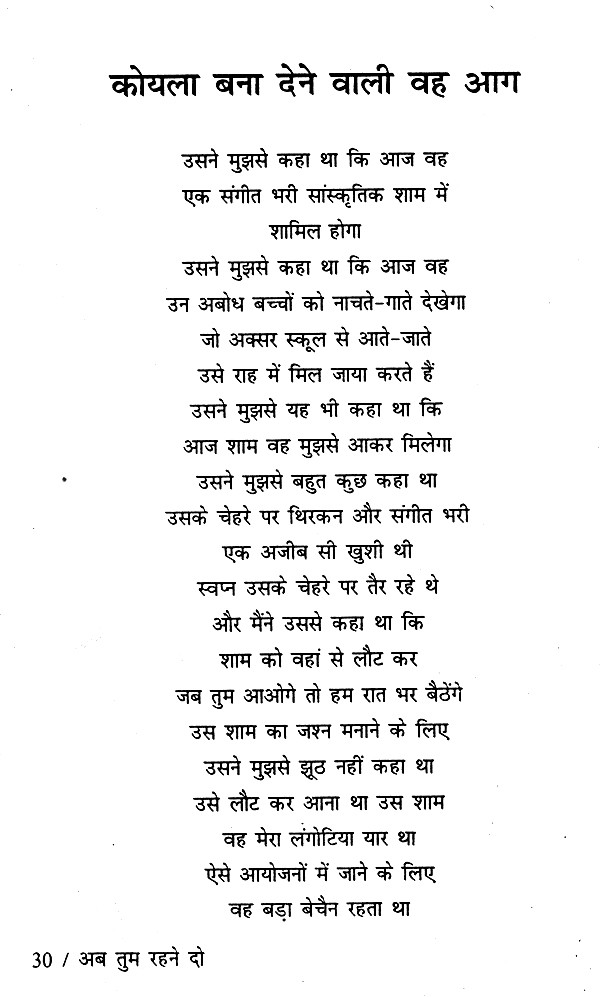 कोयला बना देने वाली वह आग
उसने मुझसे कहा था कि आज वह
एक संगीत भरी सांस्कृतिक शाम में
शामिल होगा
उसने मुझसे कहा था कि आज वह
उन अबोध बच्चों को नाचते-गाते देखेगा
जो अक्सर स्कूल से आते-जाते
उसे राह में मिल जाया करते हैं
उसने मुझसे यह भी कहा था कि
आज शाम वह मुझसे आकर मिलेगा
उसने मुझसे बहुत कुछ कहा था
उसके चेहरे पर थिरकन और संगीत भरी
एक अजीब सी खुशी थी
स्वप्न उसके चेहरे पर तैर रहे थे
और मैंने उससे कहा था कि
शाम को वहां से लौट कर
जब तुम आओगे तो हम रात भर बैठेंगे
उस शाम का जश्न मनाने के लिए
उसने मुझसे झूठ नहीं कहा था
उसे लौट कर आना था उस शाम
वह मेरा लंगोटिया यार था
ऐसे आयोजनों में जाने के लिए
वह बड़ा बेचैन रहता था
30 / अब तुम रहने दो